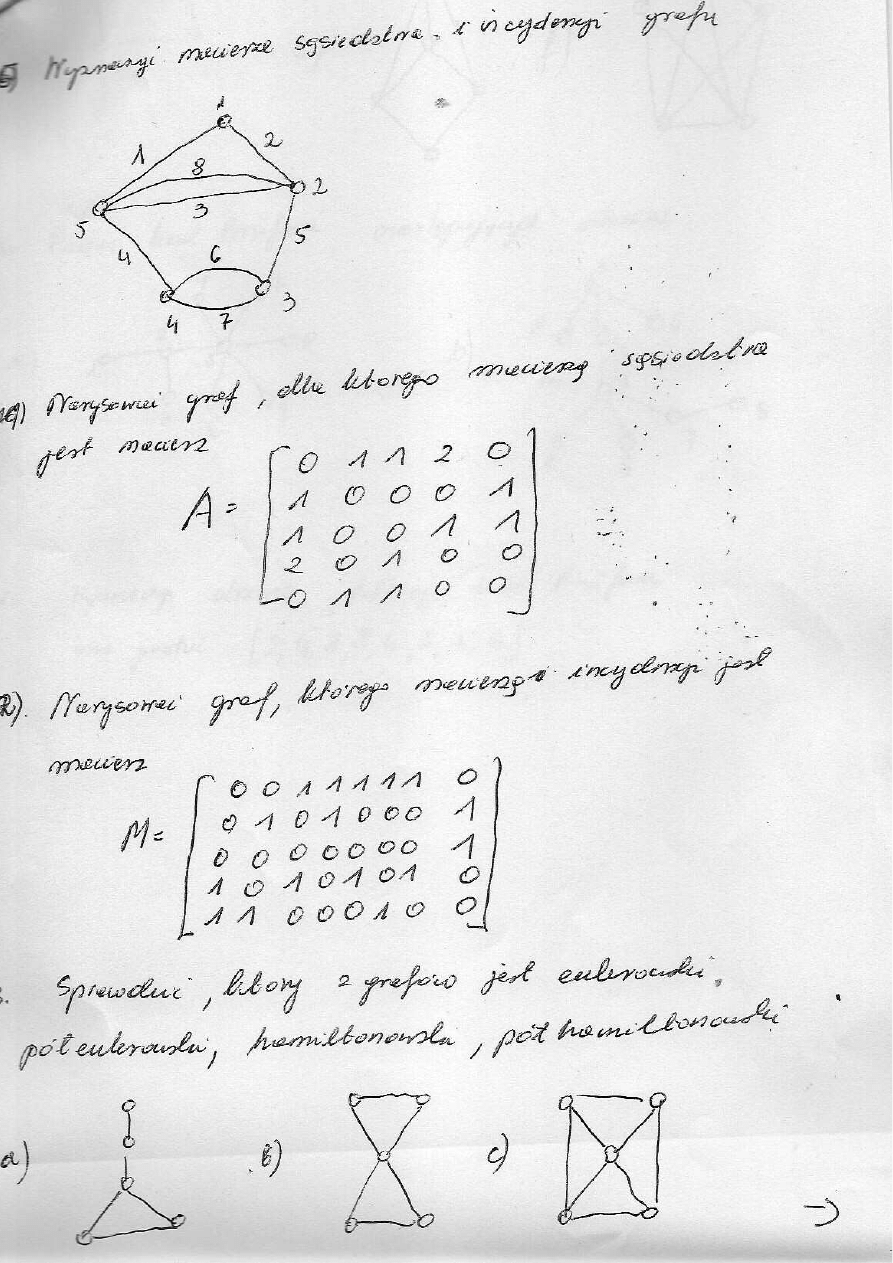 Wyznaczyi macierze sąsiedztwa. i incydencyi grafu
1
1 2
8
2
3
5 5
4 6
3
4 7
Narysowai graf, dla ktorego macierzą sąsiedztwa
jest macierz
A = [ 0 1 1 2 0
1 0 0 0 1
1 0 0 1 1
2 0 1 0 0
0 1 1 0 0 ]
2). Narysowai graf, którego macierzą incydencji jest
macierz
M = [ 0 0 1 1 1 1 1 0
0 1 0 1 0 0 0 1
0 0 0 0 0 0 0 1
1 0 1 0 1 0 1 0
1 1 0 0 0 1 0 0 ]
Sprawdzić, ktory z grafów jest eulerowski,
pół eulerowski, hamiltonowski, pół hamiltonowski
a) b) c)
→